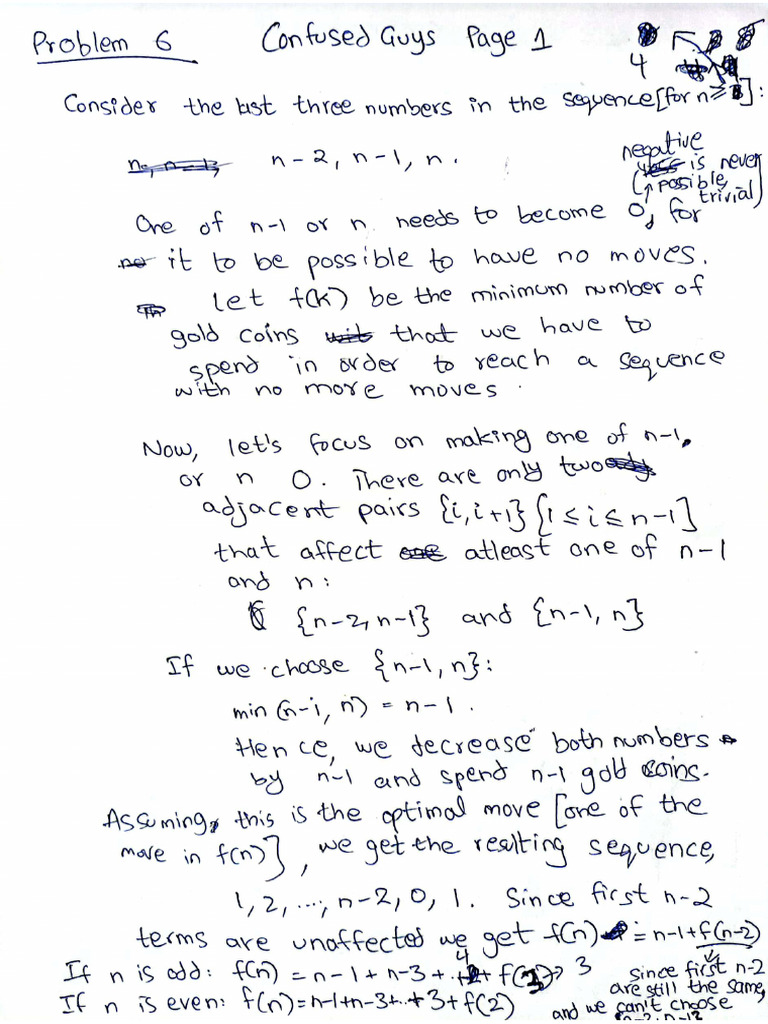 Problem 6 Confused Guys Page 1
4
Consider the last three numbers in the sequence [for n ≥ ]:
n-2, n-1, n.
negative
is never
(↑ possible,
trivial)
One of n-1 or n needs to become 0, for
it to be possible to have no moves.
let f(k) be the minimum number of
gold coins that we have to
spend in order to reach a sequence
with no more moves.
Now, let's focus on making one of n-1,
or n 0. There are only two
adjacent pairs {i, i+1} [1 ≤ i ≤ n-1]
that affect atleast one of n-1
and n:
{n-2, n-1} and {n-1, n}
If we choose {n-1, n}:
min (n-1, n) = n-1.
Hence, we decrease both numbers
by n-1 and spend n-1 gold coins.
Assuming, this is the optimal move [one of the
move in f(n)], we get the resulting sequence,
1, 2, ..., n-2, 0, 1. Since first n-2
terms are unaffected we get f(n) = n-1+f(n-2)
If n is odd: f(n) = n-1 + n-3 + .. 4 + f(3) 3
since first n-2
are still the same,
If n is even: f(n) = n-1+n-3+..+3+f(2)
and we can't choose